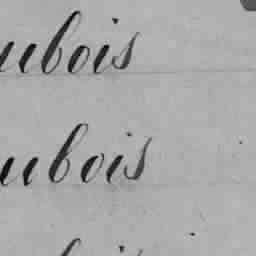 ubois
ubois